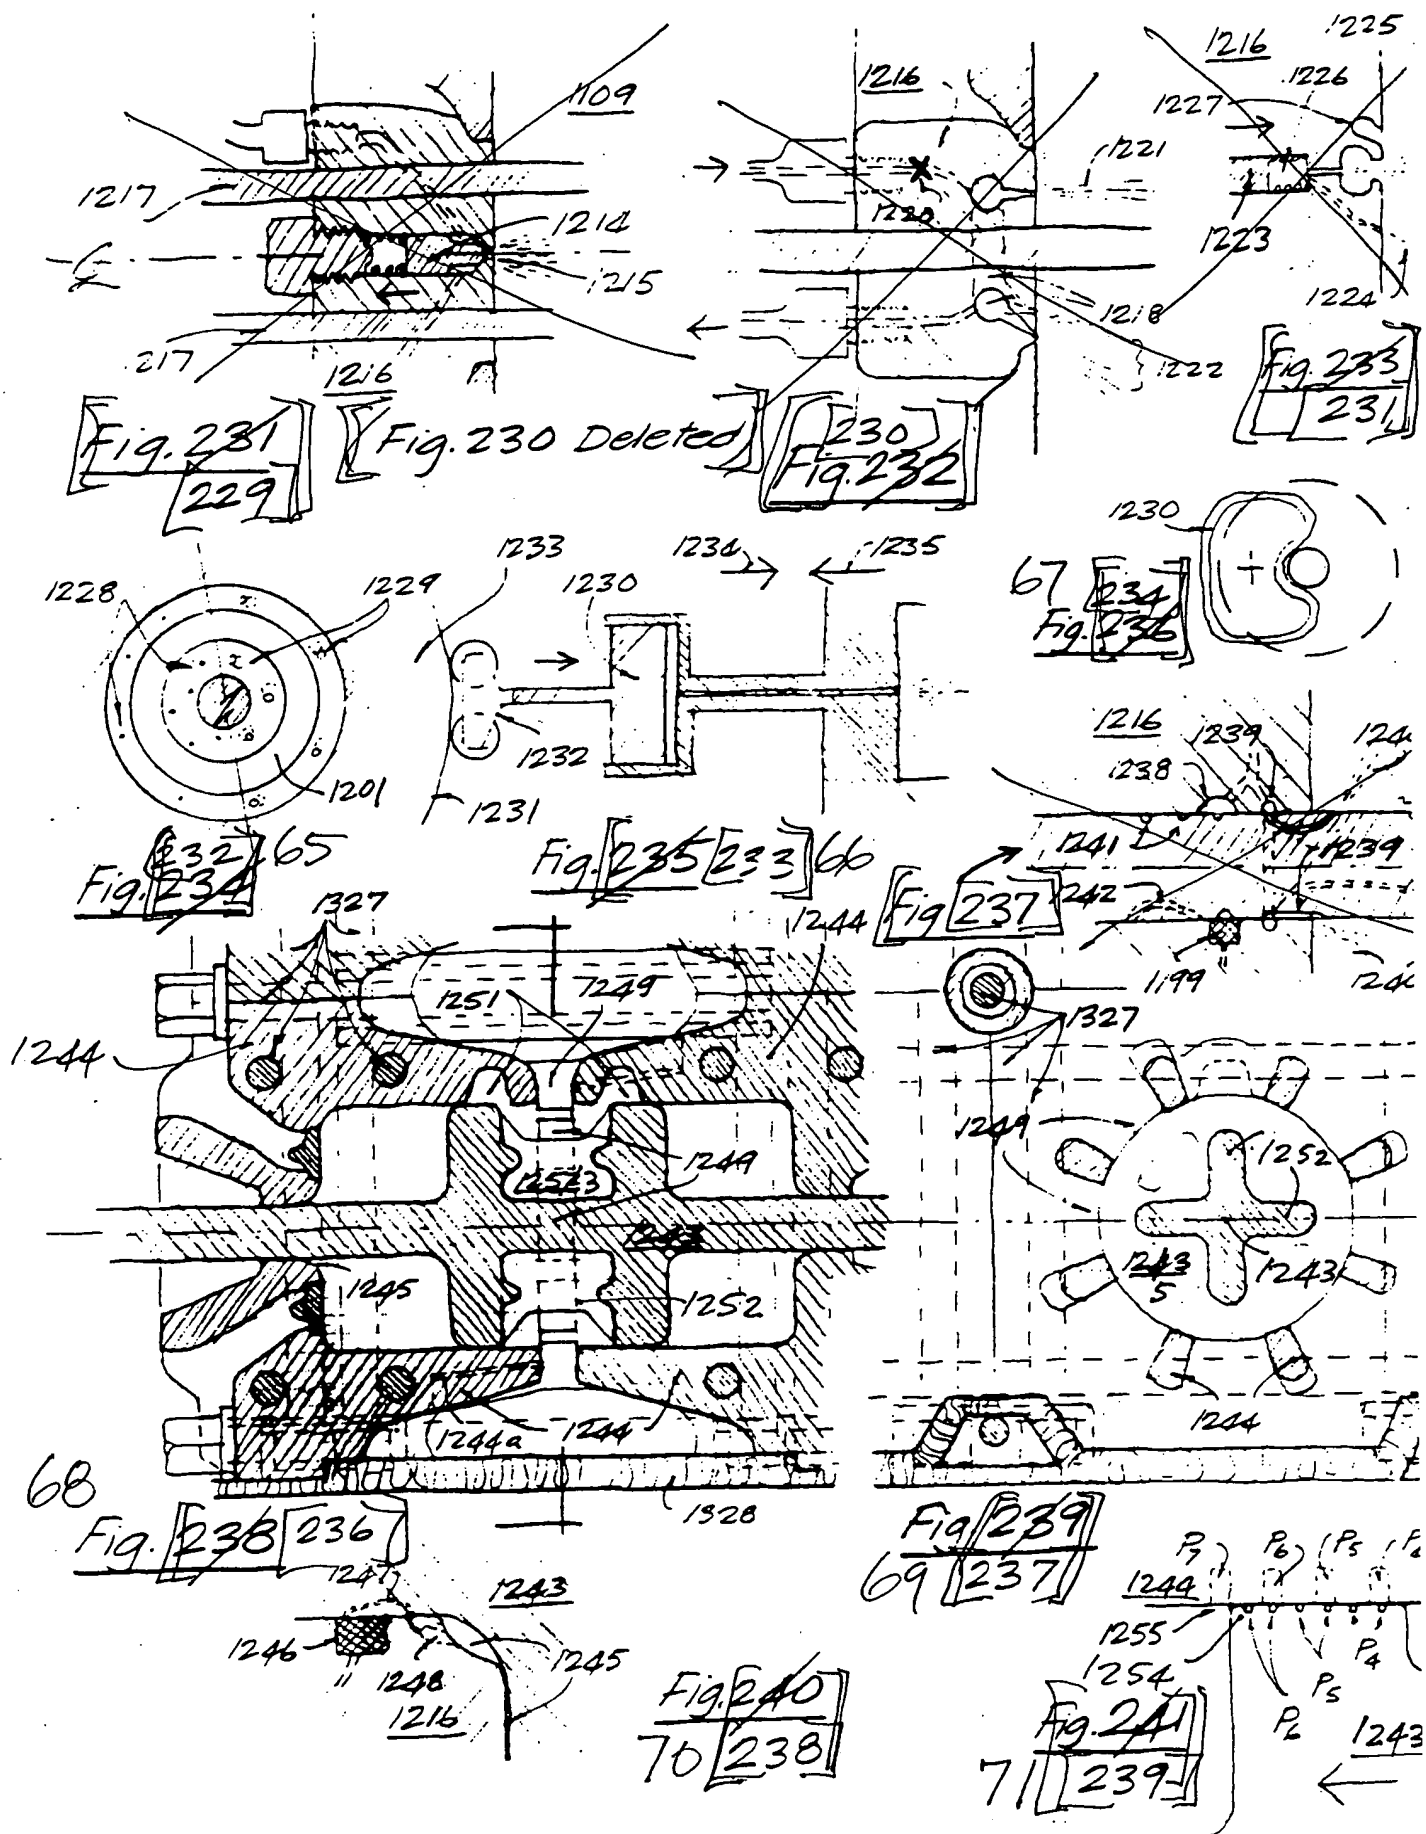 1109
1217
1214
1215
1217
1216
Fig. 231
229
Fig. 230 Deleted
1216
1220
1221
1218
1222
230
Fig. 232
1216
1225
1226
1227
1223
1224
Fig. 233
231
1228
1229
1201
232 65
Fig. 234
1233
1230
1234
1235
1232
1231
Fig. 235 233 66
1230
67 234
Fig. 236
1216
1239
1238
1241
1239
1242
1199
Fig 237
1327
1244
1251
1249
1244
1249
1243
1245
1252
1244a
1244
1328
68
Fig. 238 236
1327
1249
1252
1243
1243
5
1244
Fig 239
69 237
1247
1243
1246
1248
1245
1216
Fig. 240
70 238
P7 P6 P5
1244
1255
1254
P4
P5
P6
1243
Fig. 241
71 239